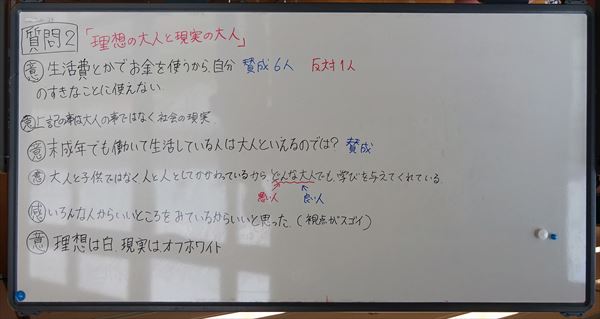 質問2 「理想の大人と現実の大人」
意 生活費とかでお金を使うから、自分 賛成6人 反対1人
のすきなことに使えない。
意 上記の事は大人の事ではなく社会の現実
意 未成年でも働いて生活している人は大人といえるのでは? 賛成
意 大人と子供ではなく人と人としてかかわっているから、どんな大人でも、学びを与えてくれている。
悪い人 良い人
感 いろんな人からいいところをみているからいいと思った。(視点がスゴイ)
意 理想は白、現実はオフホワイト